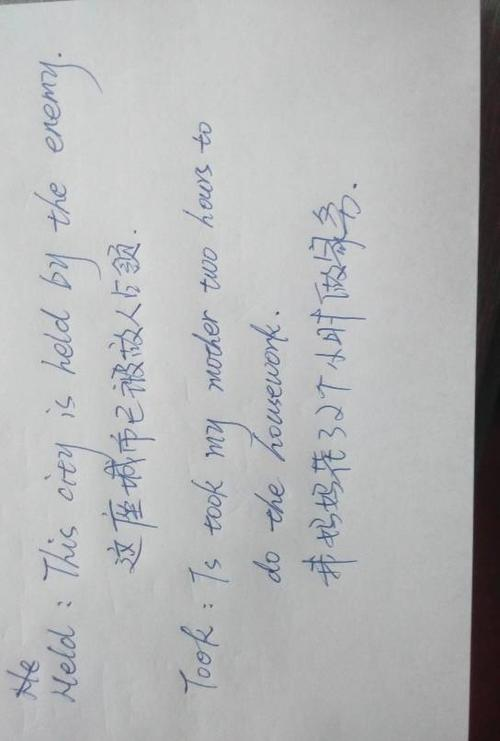 He
Held : This city is held by the enemy.
这座城市已被敌人占领.
Took : Is took my mother two hours to
do the housework.
我妈妈花了2个小时做家务.